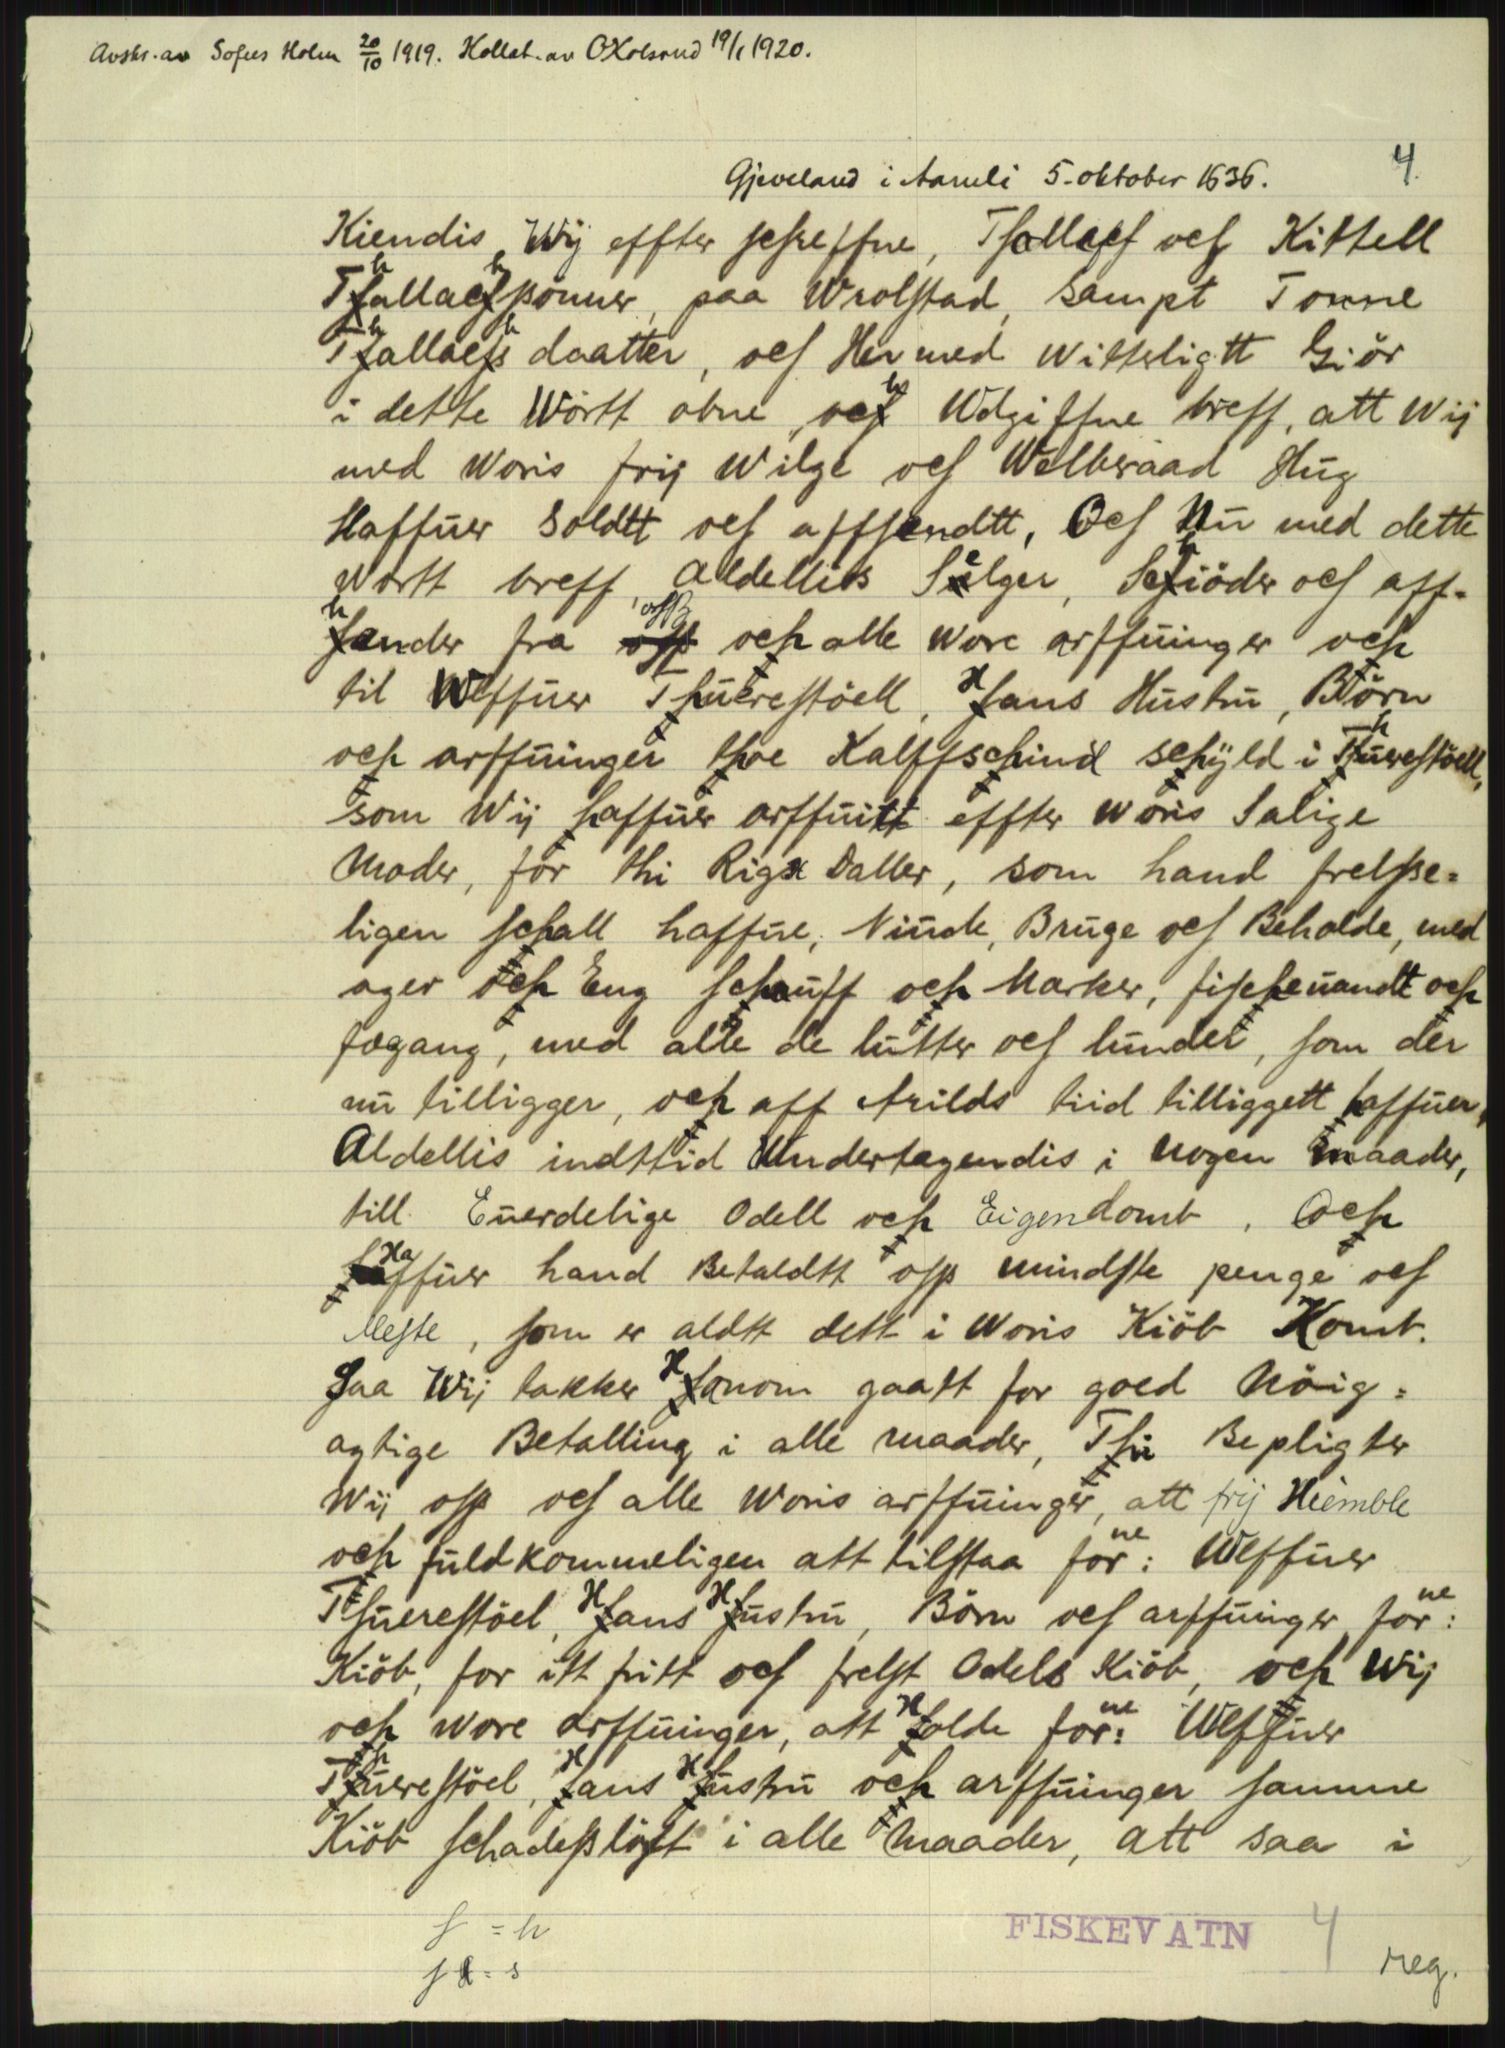 Avskr. av Sofus Holm 20/10 1919. Kollat. av O Kolsrud 19/1 1920.
4
Gjeveland i Aamli 5. oktober 1636.
Kiendis Wij effter schreffne, Thallach och Kittell
Thallachsønner, paa Wrolstad, sampt Tonne
Thallachs daatter, och Her med witterligtt Giör
i dette Wörtt obne, och Wdgiffne breff, att Wij
med Woris frij Wilge och Welberaad Hug
Haffuer Soldtt och affhendtt, Och Nu med dette
Wortt breff, Aldellis Selger, Schiöder och aff-
hender fra oss och alle wore arffuinger och
til Weffuer Thuerestöell, Hans Hustru, Börn
och arffuinger thoe Kalffschind schyld i Thuerestöell,
som Wij haffuer arffuitt effter woris Salige
Moder, for thi Rigs Daller, som hand frelse=
ligen schall haffue, Niude, Bruge och Beholde, med
ager och Eng schouff och Marker, fischeuandt och
fægang, med alle de lutter och lunder, som der
nu tilligger, och aff Arilds tiid tilliggett haffuer,
Aldellis indttid Undertagendis i nogen maader,
till Euerdelige Odell och Eigendomb, Och
Haffuer hand Betaldtt oss mindste penge och
Meste, som er aldtt dett i Woris Kiöb Komb.
Saa Wij takker Hanom gaatt for goed Nöig=
agtige Betalling i alle maader, Thi Bepligter
Wij oss och alle Woris arffuinger, att frij Hiemble
och fuldkommeligen att tilstaa forne: Weffuer
Thuerestöel, Hans Hustru, Börn och arffuinger forne:
Kiöb, for itt fritt och frelst Odels Kiöb, och Wij
och wore arffuinger, att Holde forne: Weffuer
Thuerestöel, Hans Hustru och arffuinger samme
Kiöb schadesslöst i alle Maader, att saa i
= h
= s
FISKEVATN
4
reg.